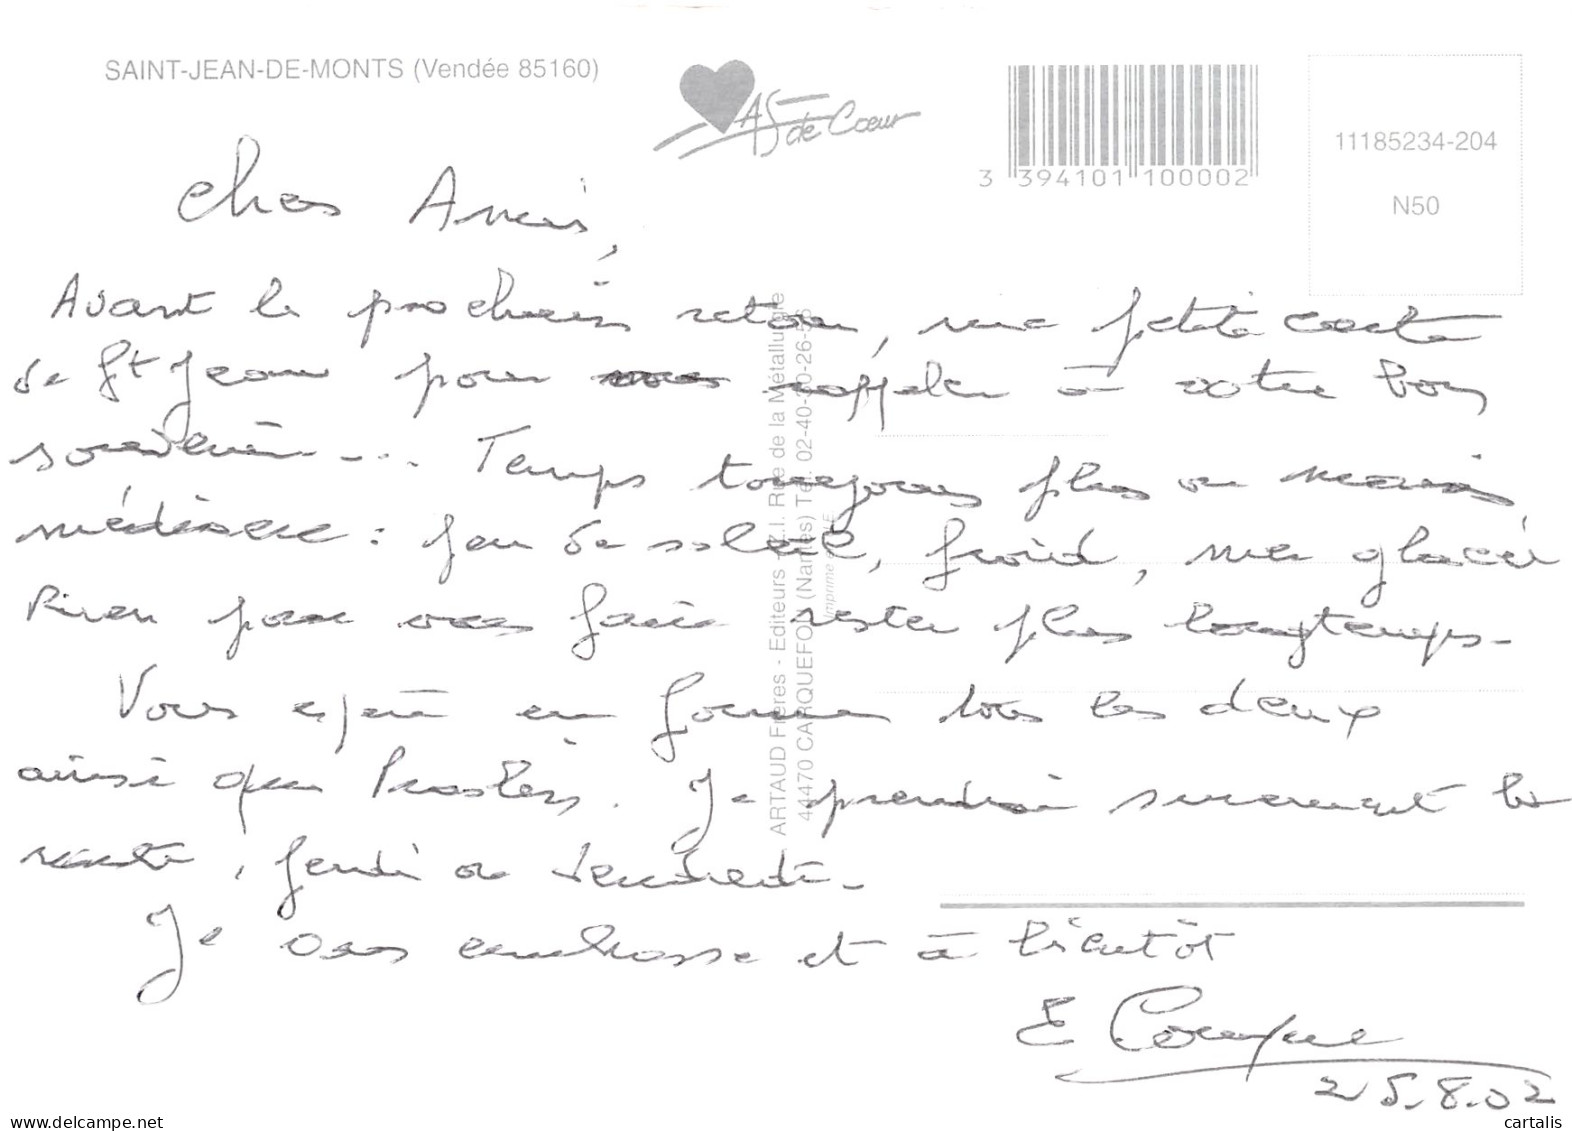 SAINT-JEAN-DE-MONTS (Vendée 85160)
AS de Cœur
3 394101 100002
11185234-204
N50
Chers Amis,
Avant le prochain retour, une petite carte
de St Jean pour me rappeler à votre bon
souvenir... Temps toujours plus ou moins
médiocre : peu de soleil, froid, mer glacée
Rien pour vous faire rester plus longtemps.
Vous espère en forme tous les deux
ainsi que . Je prendrai surement la
route, jeudi ou vendredi.
Je vous embrasse et à bientôt
E
25.8.02
ARTAUD Frères - Editeurs - Z.I. Rue de la Métallurgie
44470 CARQUEFOU (Nantes) Tél. 02-40-30-26-
Imprimé
www.delcampe.net
cartalis